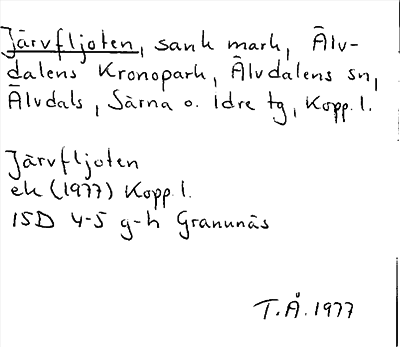 Järvfljoten, sank mark, Älv-
dalens Kronopark, Älvdalens sn,
Älvdals, Särna o. Idre tg, Kopp. l.
Järvfljoten
ek (1977) Kopp. l.
15D 4-5 g-h Granunäs
T.Å. 1977